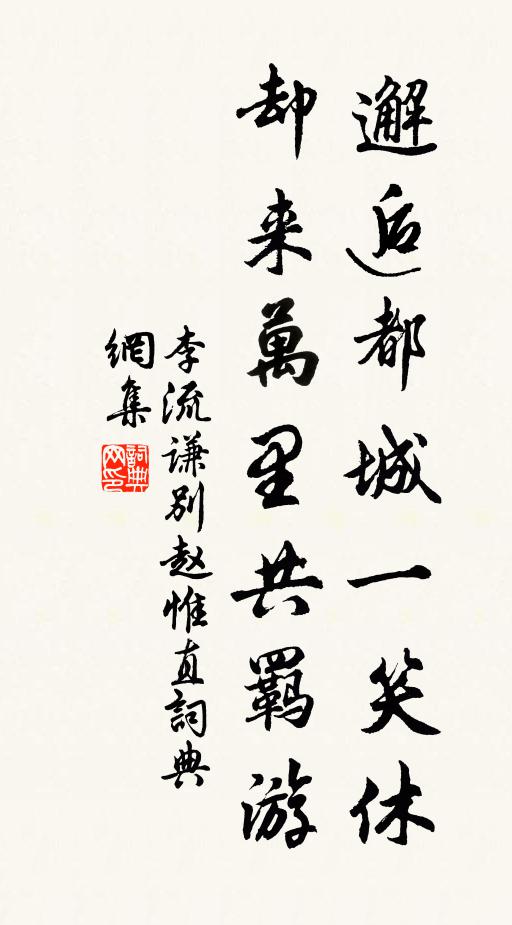 邂逅都城一笑休
却来萬里共羁游
李流谦别赵惟直詞典
網集
詞典
网印